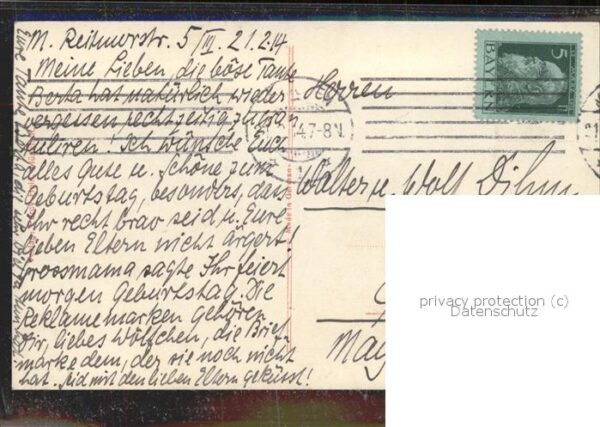 M. Reitmorstr. 5/III. 21.2.14
Meine Lieben, die böse Tante
Berta hat natürlich wieder
vergessen rechtzeitig zu gratu
lieren! Ich wünsche Euch
alles Gute u. Schöne zum
Geburtstag, besonders, dass
Ihr recht brav seid u. Eure
lieben Eltern nicht ärgert!
Grossmama sagte Ihr feiert
morgen Geburtstag. Die
Reklamemarken gehören
Dir, liebes Wölfchen, die Brief
marke dem, der sie noch nicht
hat. Seid mit den lieben Eltern geküsst!
Eure Tante Berta
Herren
Walter u. Wolf Dihm
5
BAYERN
47-8V
Made in Germany
privacy protection (c)
Datenschutz